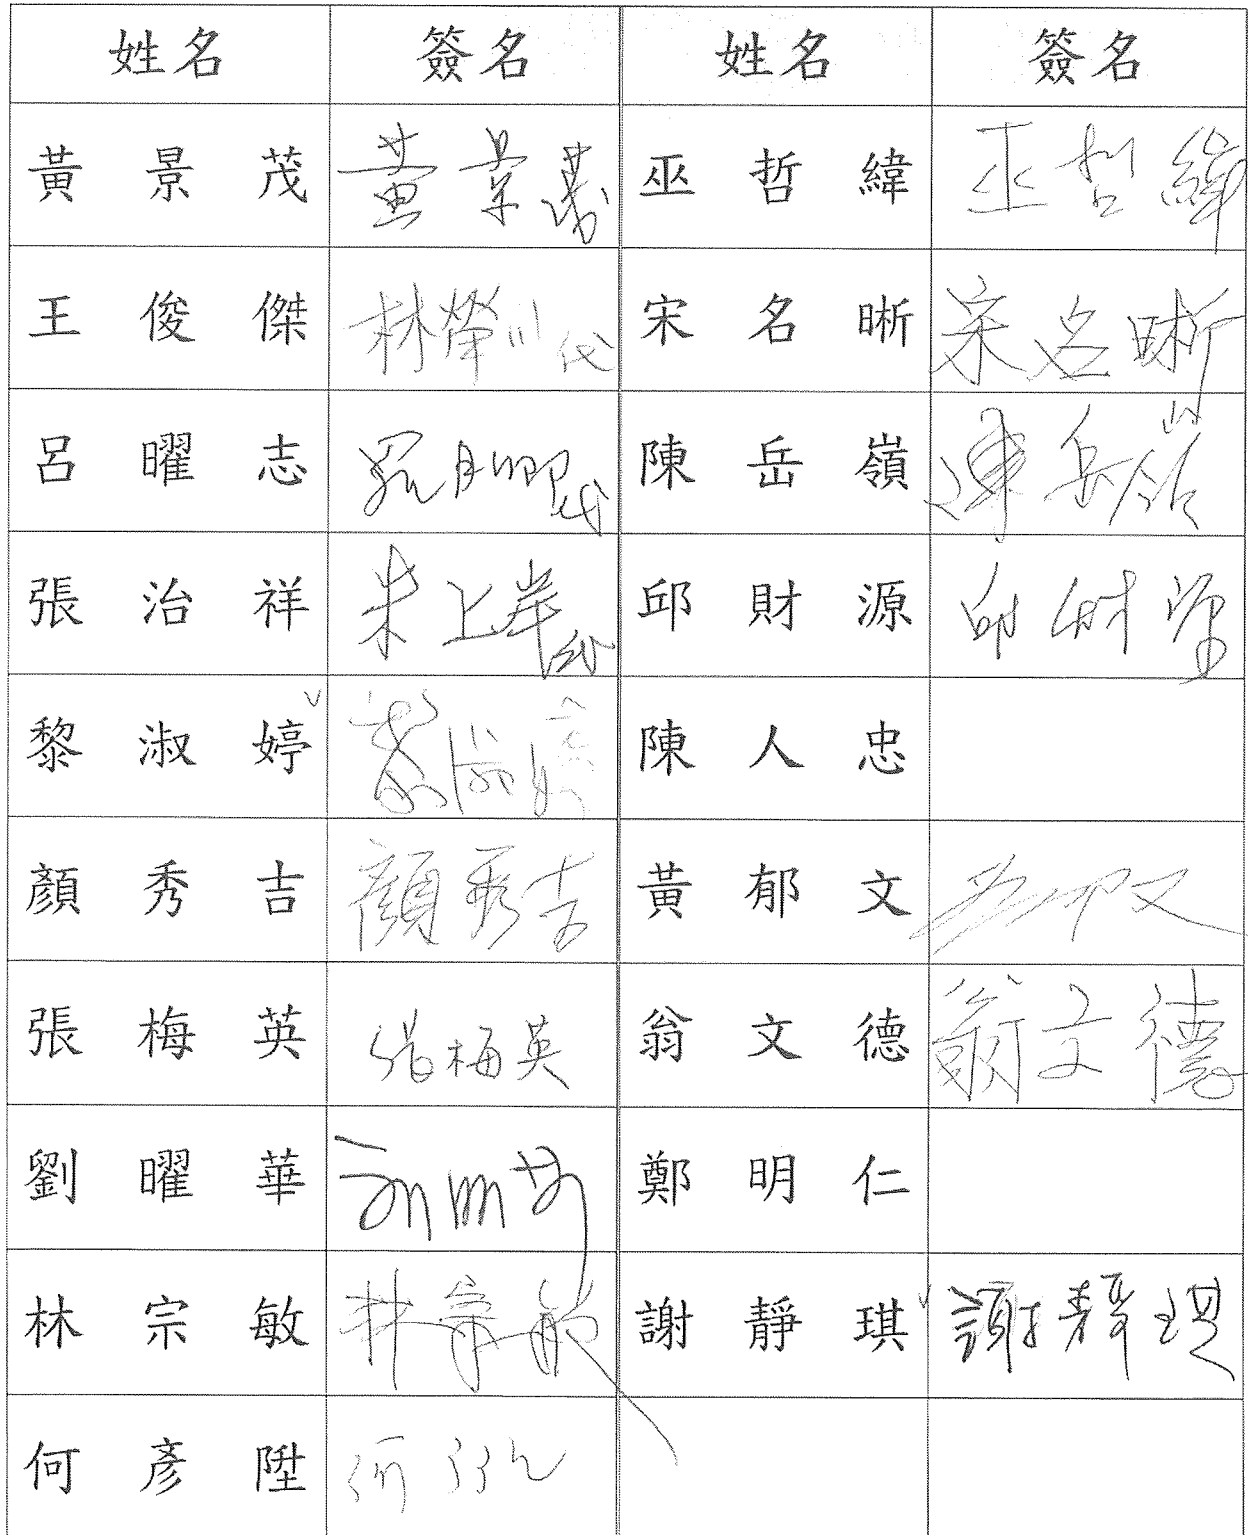 姓名 簽名 姓名 簽名
黃景茂 黃景茂 巫哲緯 巫哲緯
王俊傑 林榮川代 宋名晰 宋名晰
呂曜志 代 陳岳嶺 陳岳嶺
張治祥 朱上岸代 邱財源 邱財源
黎淑婷 黎淑婷 陳人忠
顏秀吉 顏秀吉 黃郁文 黃郁文
張梅英 張梅英 翁文德 翁文德
劉曜華 劉曜華 鄭明仁
林宗敏 林宗敏 謝靜琪 謝靜琪
何彥陞 何彥陞